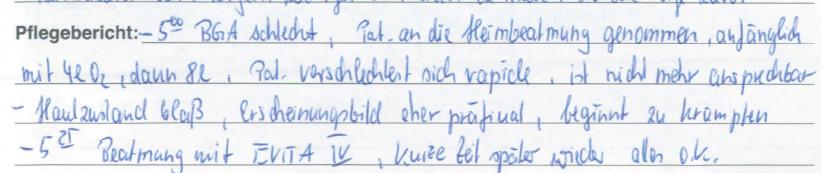 Pflegebericht: - 5⁰⁰ BGA schlecht, Pat. an die Heimbeatmung genommen, anfänglich
mit 4l O₂, dann 8l. Pat. verschlechtert sich rapide, ist nicht mehr ansprechbar
- Hautzustand blaß, Erscheinungsbild eher präfinal, beginnt zu krampfen
- 5²⁵ Beatmung mit EVITA IV, kurze Zeit später wieder alles o.k.